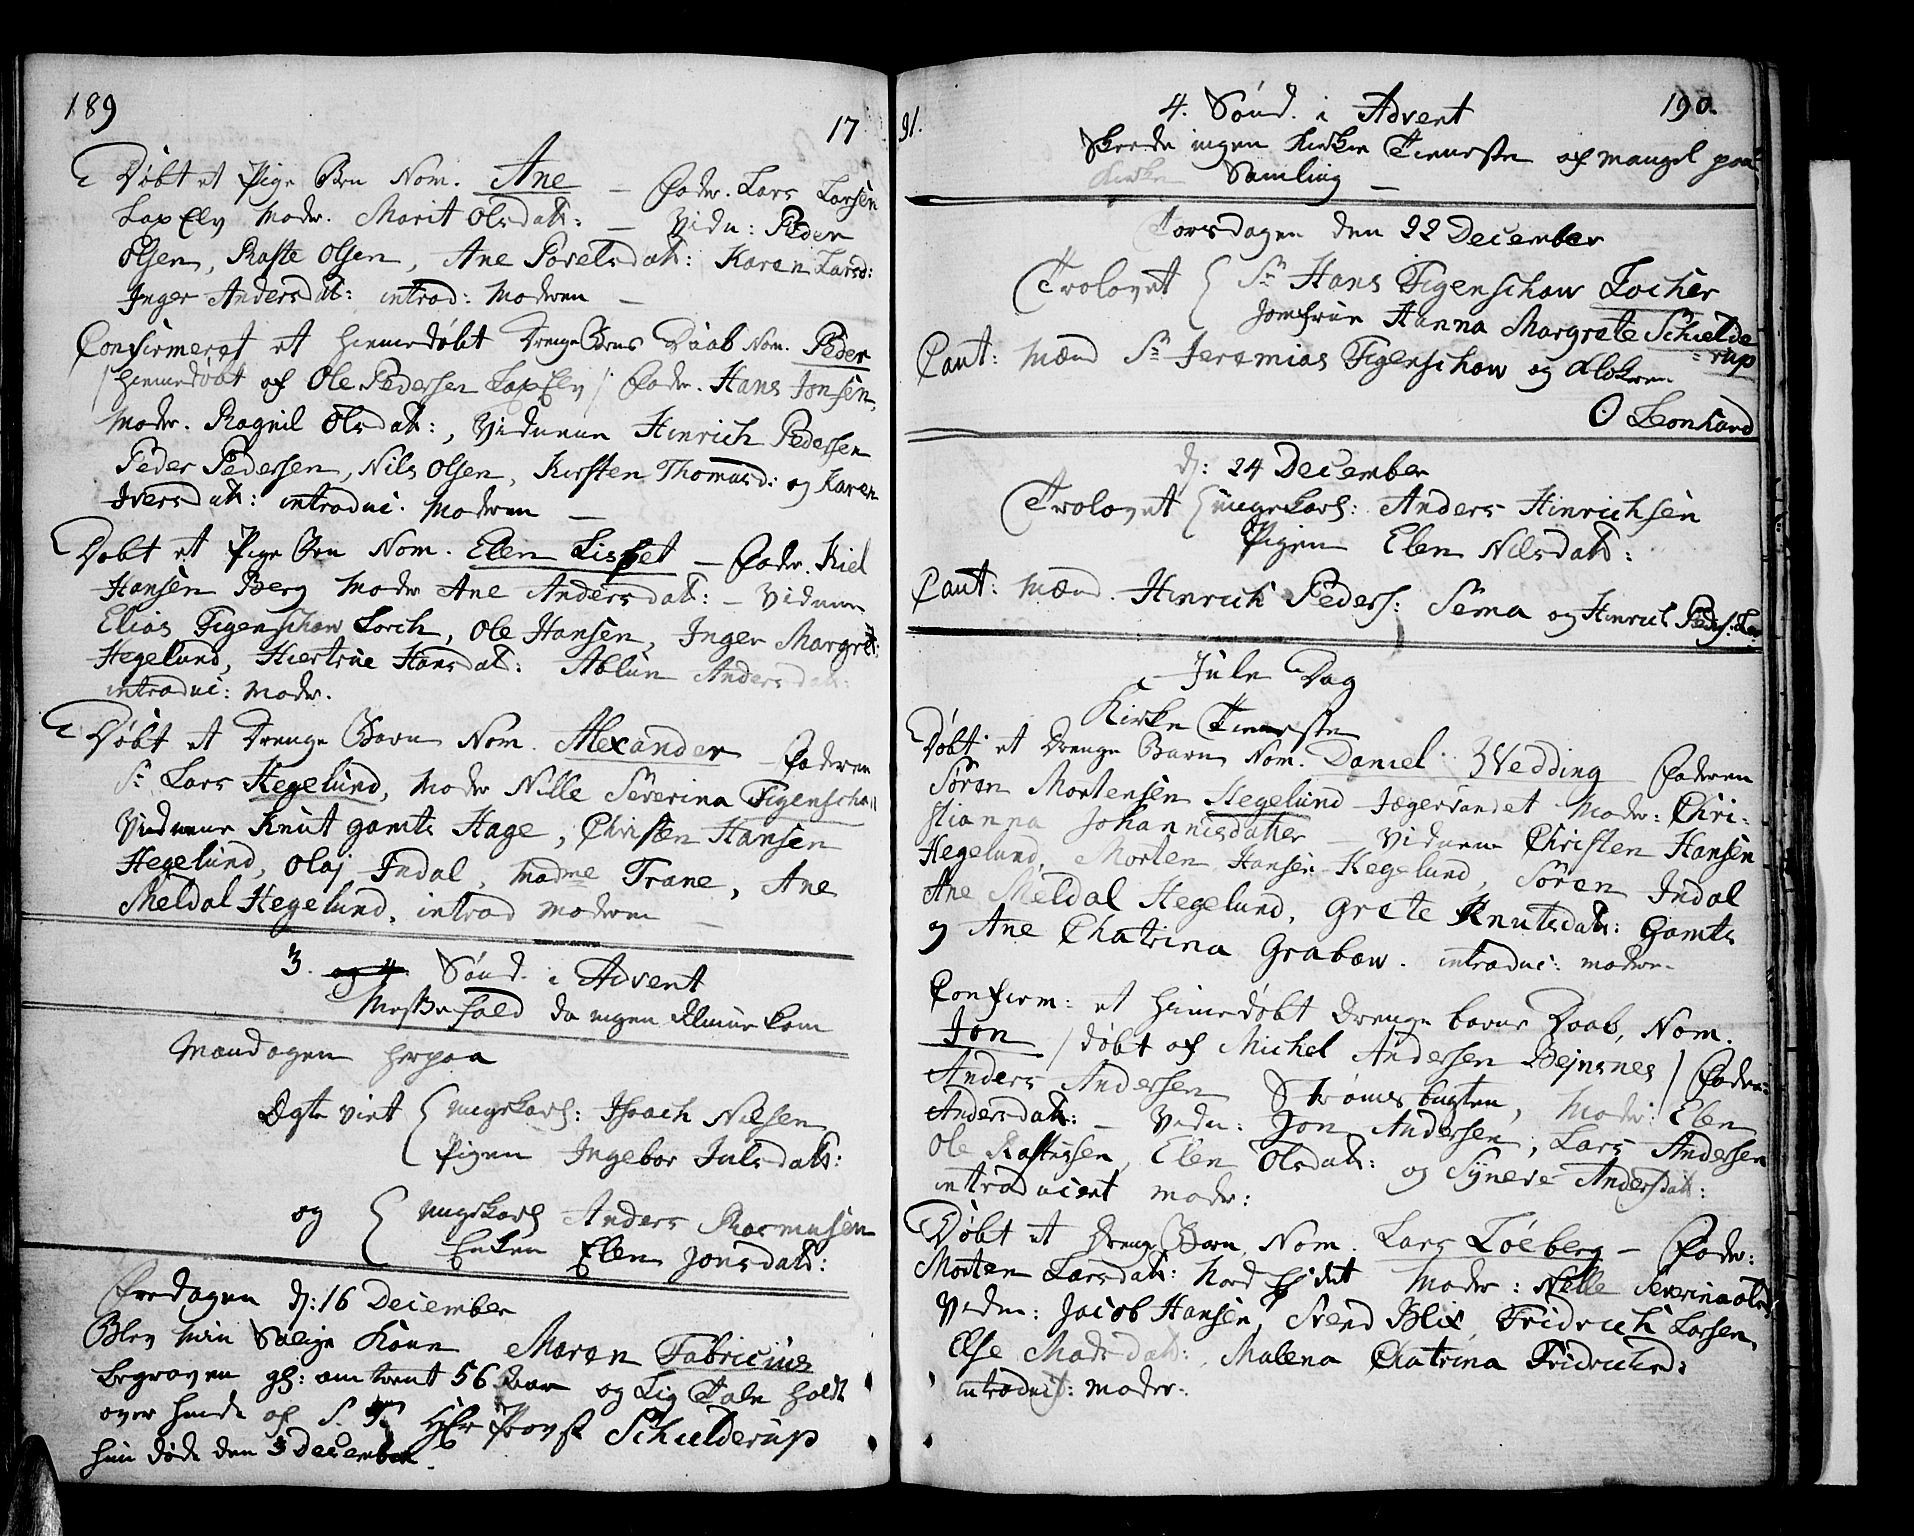 189
17
Døbt et Pige Brn Nom. Ane — Fadr. Lars Larsen
LaxElv Modr. Marit Olsdatr: — Vidn: Peder
Olsen, Raste Olsen, Ane Povelsdatr: Karen Larsd:
Inger Andersdatr: introd: Modren —
Confirmeret et hiemedøbt Drenge Brns Daab Nom. Peder
/hiemedøbt af Ole Pedersen LaxElv/ Fadr. Hans Jonsen,
Modr. Ragnil Olsdatr:, Vidnerne Hinrich Pedersen
Peder Pedersen, Nils Olsen, Kirsten Thomasd: og Karen
Iversdatr: introduc. Modren —
Døbt et Pige Brn Nom. Elen Lisbet — Fadr. Kiel
Hansen Berg Modr Ane Andersdatr: — Vidnerne
Elias Figenschow Lorch, Ole Hansen, Inger Margret:
Hegelund, Hiertrue Hansdatr: Ablun Andersdatr:
introduc: Modr.
Døbt et Drenge Barn Nom. Alexander — Fadren
Sr. Lars Hegelund, Modr Nille Severina Figenschow
Vidnerne Knut Gamts Hage, Christen Hansen
Hegelund, Olaj Indal, Madme Trane, Ane
Meldal Hegelund, introd Modren —
3. og 4 Sønd. i Advent
Messefald da ingen Almue kom
Mandagen herpaa
Ægte viet { Ungekarl: Isaach Nilsen
Pigen Ingebor Julsdatr:
og { Ungekarl Anders Rasmusen
Enken Elen Jonsdatr:
Fredagen d: 16 December
Blev min Salige Kone Maren Fabricius
begraven gl: omtrent 56 Aar og Lig Tale holdt
over hende af S. T. Hr Provst Schielderup
hun døde den 3 December.
91.
190.
4. Sønd. i Advent
Skeede ingen Kirke Tieneste af mangel paa
Kirke Samling —
Torsdagen den 22 December
Trolovet { Sr. Hans Figenschow Locher
Jomfrue Hanna Margrete Schielde
-rup
Caut: Mænd Sr. Jeremias Figenschow og Klokren
O Leonhard
d: 24 December
Trolovet { Ungekarl: Anders Hinrichsen
Pigen Elen Nilsdatr:
Caut: Mænd. Hinrich Peders: Sema og Hinrich Peders:
Jule Dag
Kirke Tieneste
Døbt et Drenge Barn Nom. Daniel Wedding Fadren
Søren Mortensen Hegelund Jægervandet Modr: Chri-
stianna Johannisdatter — Vidnerne Christen Hansen
Hegelund, Morten Hansen Hegelund, Søren Indal
Ane Meldal Hegelund, Grete Knutsdatr: Gamts
og Ane Chatrina Grabow. introduc: modren
Confirm: et hiemedøbt Drenge barns Daab, Nom.
Jon /døbt af Michel Andersen Bejnsnes/ Fadr:
Anders Andersen Strømsbugten, Modr: Elen
Andersdatr: — Vidn: Jon Andersen, Lars Andersen
Ole Rastessen, Elen Olsdatr: og Syneve Andersdatr:
introduceret modr:
Døbt et Drenge Barn Nom. Lars Löeberg — Fadr:
Morten Larsdatr: Nord Ejdet Modr: Nille Severina
Vidn: Jacob Hansen, Svend Blix, Fridrich Larsen,
Else Madsdatr:, Malena Chatrina Fridrichsd:
introduct: modr: